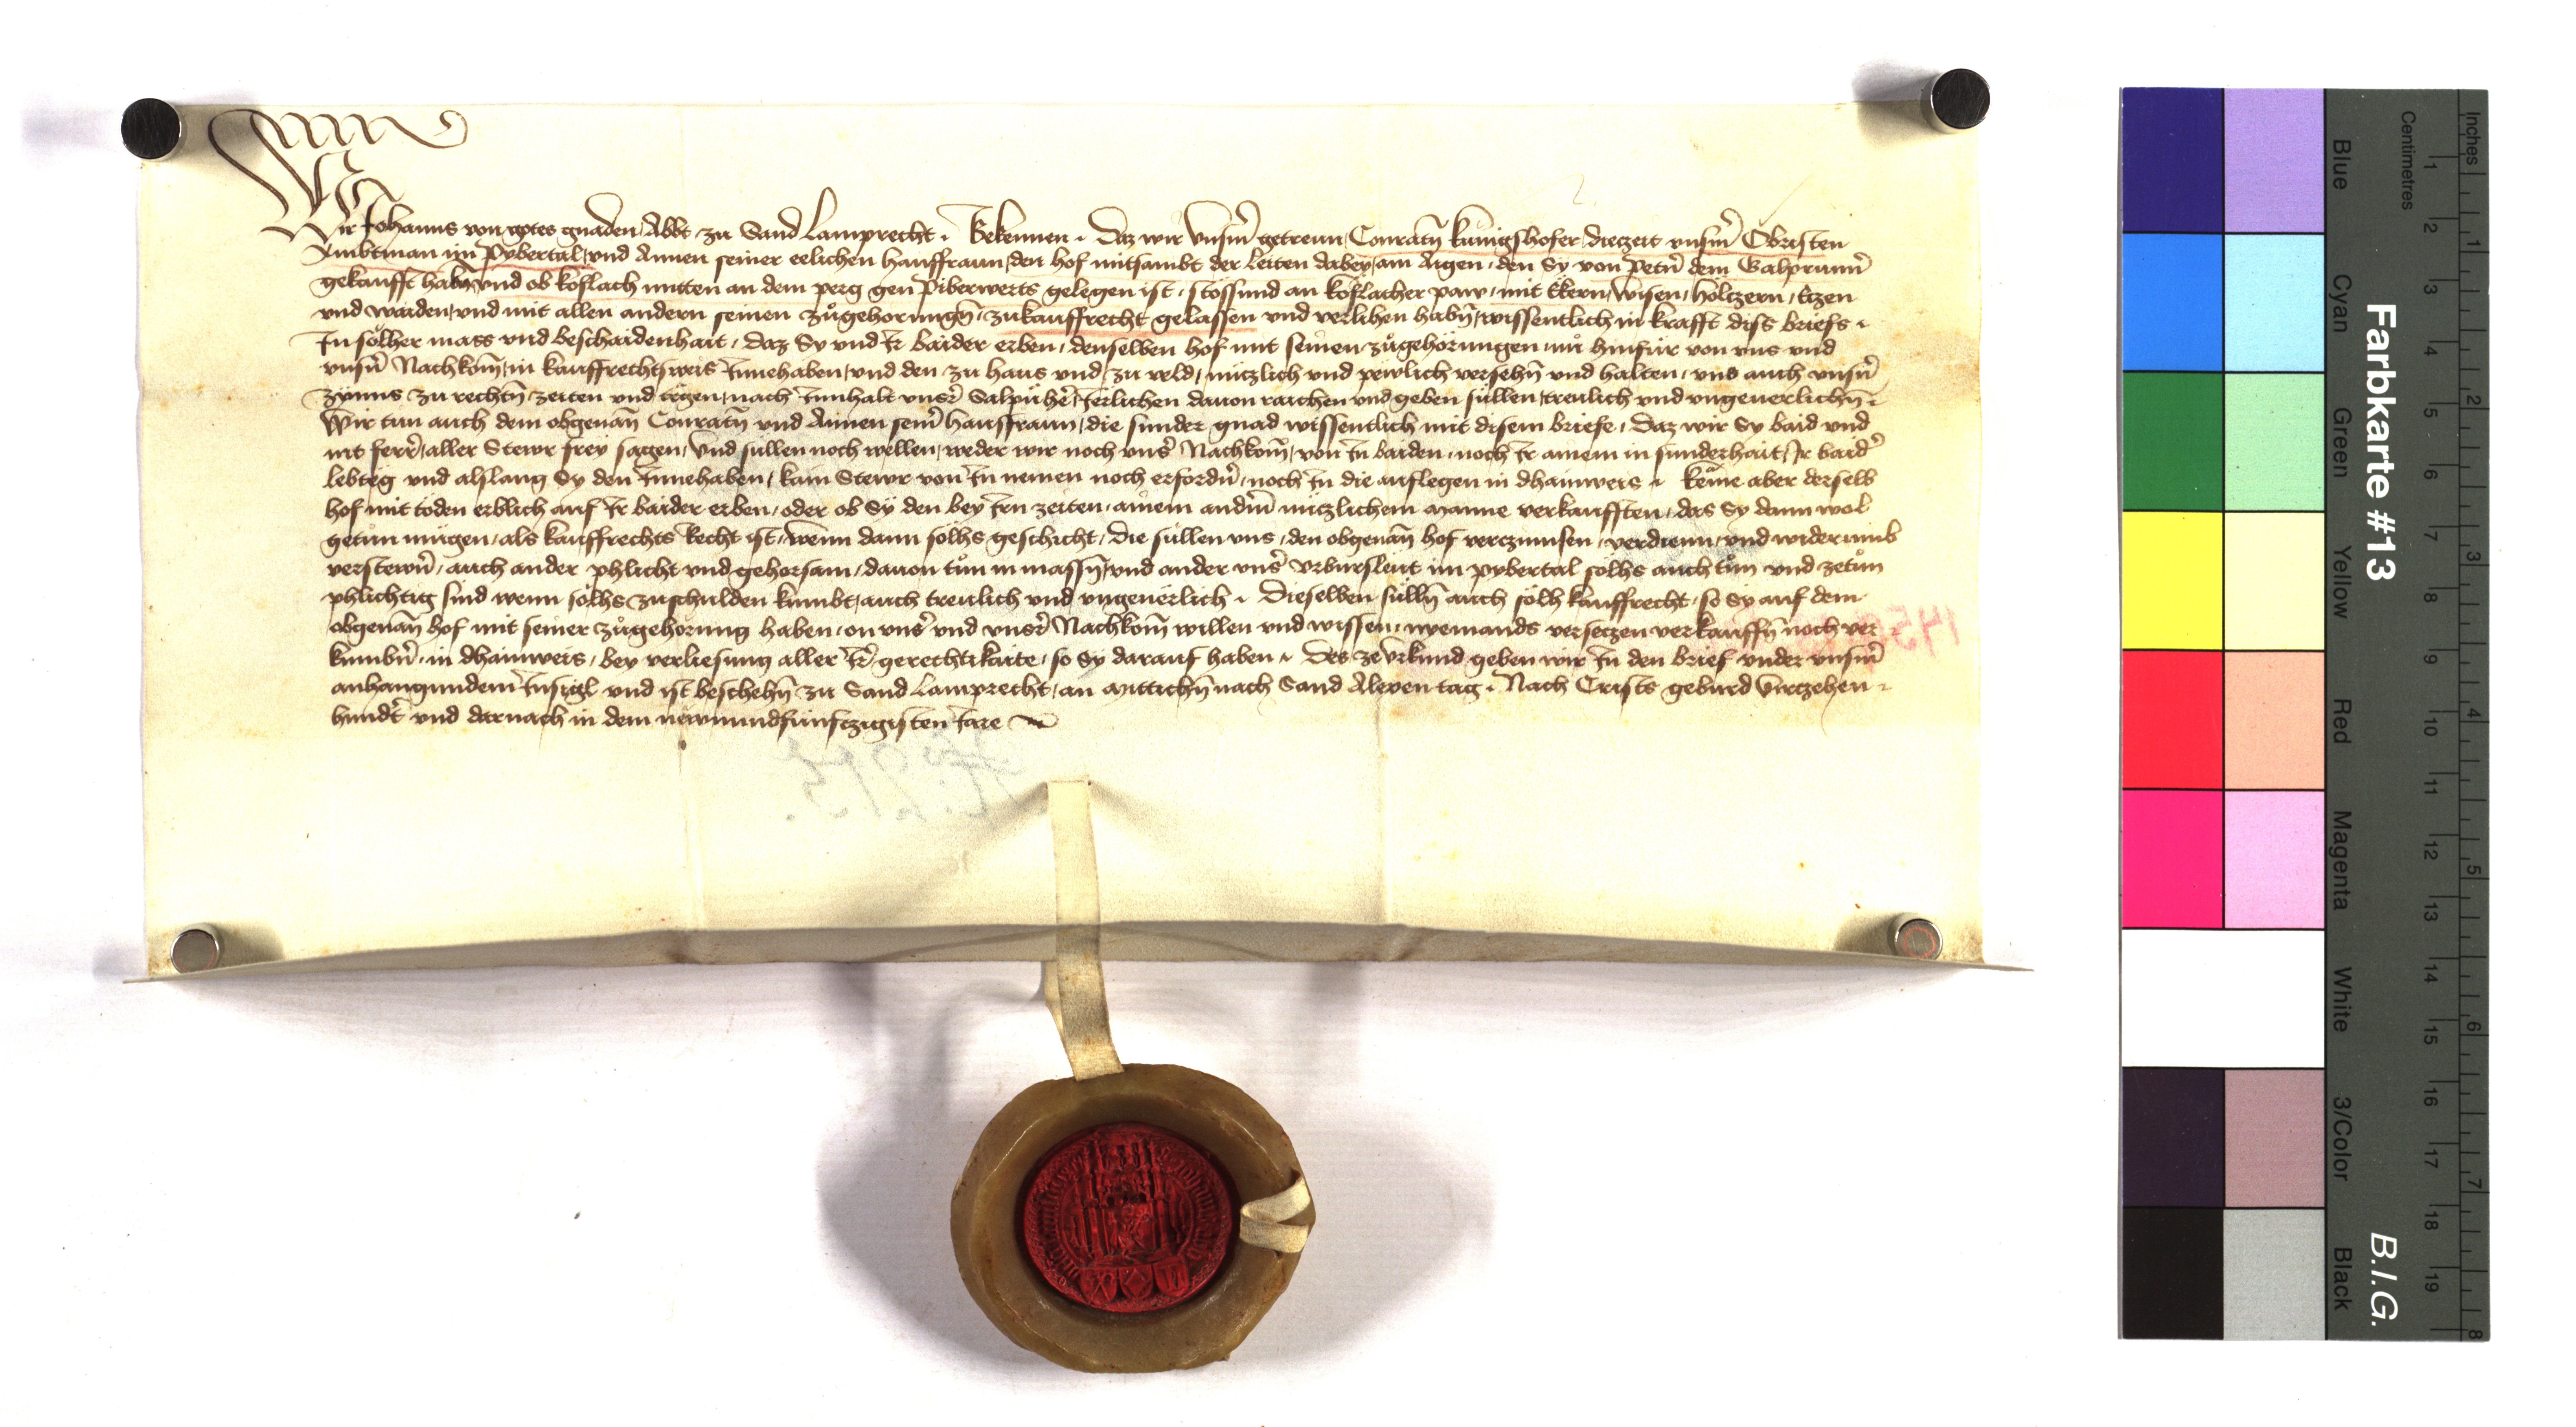 Wir Johanns von gotes gnaden Abbt zu Sand Lamprecht. Bekennen. Daz wir vnserm getreun Conratn kunigshofer dieczeit vnserm Obristen
Ambtman im Pybertal vnd Annen seiner eelichen hausfraun den hof mitsambt der Leiten dabey am Aigen den Sy von Petern dem
gekaufft habn vnd ob koflach mitten an dem perg gen Piberwerts gelegen ist stossund an koflacher paw mit Ekern wisen holczern Eczen
vnd waiden vnd mit allen andern seinen zugehorungn zukauffrecht gelassen vnd verlihen habn wissentlich in krafft diss briefs
In solher mass vnd beschaidenhait daz Sy vnd Ir baider erben denselben hof mit seinen zugehörungen nu hinfur von vns vnd
vnsern Nachkom in kauffrechtsweis Innehaben vnd den zu haus vnd zu veld nuczlich vnd pewlich versehn vnd halten vns auch vnsern
zynns zu rechtn zeiten vnd tegen nach Innhalt vnser Salpuher Jerlichen dauon raichen vnd geben süllen treulich vnd vngeuerlichn
Wir tun auch dem obgenan Conratn vnd Annen seiner hausfraun die sunder gnad wissentlich mit disem briefe Daz wir Sy baid vnd
nit ferrer aller Stewr frey sagen vnd sullen noch wellen weder wir noch vnser Nachkom von In baiden noch Ir ainem in sunderhait Ir baider
lebteg vnd alslang Sy den Innehaben kain Stewr von In nemen noch erfordern noch In die auflegen in dhainweis. keme aber derselb
hof mit toden erblich auf Ir baider erben oder ob Sy den bey Irn zeiten ainem anderm nuczlichem manne verkaufften das Sy dann wol
getun mügen als kauffrechts Recht ist wenn dann solhs geschicht Die süllen vns den obgenan hof verczinnsen verdienn vnd widerumb
verstewrn auch ander phlicht vnd gehorsam dauon tun in massn vnd ander vnser vrbursleut im pybertal solhs auch tun vnd zetun
phlichtig sind wenn solhs zuschulden kumbt auch treulich vnd vngeuerlich. Dieselben sulln auch solh kauffrecht so Sy auf dem
obgenan hof mit seiner zugehorung haben on vnser vnd vnser Nachkom willen vnd wissen nyemands verseczen verkauffn noch ver
kumbern in dhainweis bey verliesung aller Ir gerechtikaite so Sy darauf haben. Des ze vrkund geben wir In den brief vnder vnserm
anhangundem Insigl vnd ist beschehn zu Sand Lamprecht an mittichn nach Sand Alexen tag. Nach Crists geburd virczehen
hundert vnd darnach in dem newnundfunfczigisten Jare
Farbkarte #13
B.I.G.
Inches
Centimetres
1 2 3 4 5 6 7 8
1 2 3 4 5 6 7 8 9 10 11 12 13 14 15 16 17 18 19
Blue
Cyan
Green
Yellow
Red
Magenta
White
3/Color
Black